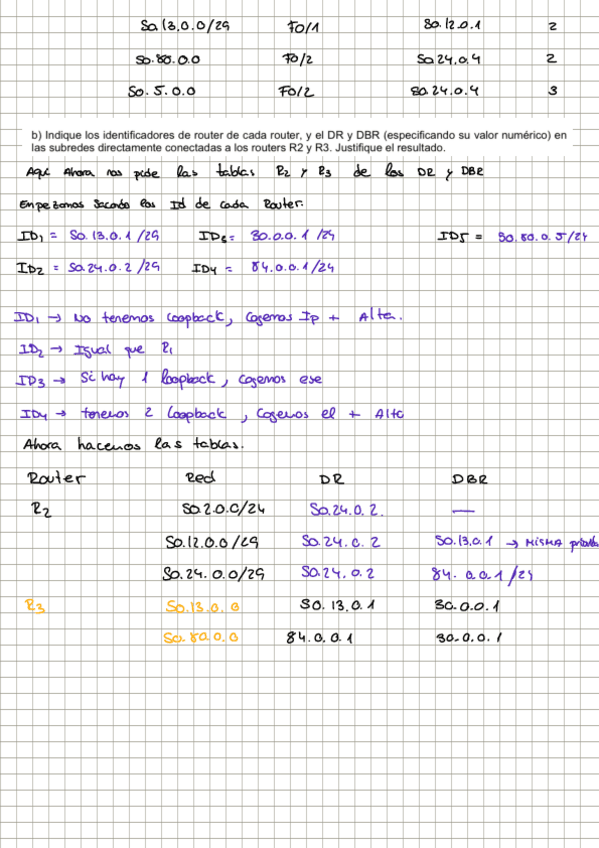 50.13.0.0/29 F0/1 50.12.0.1 2
50.80.0.0 F0/2 50.24.0.4 2
50.5.0.0 F0/2 50.24.0.4 3
b) Indique los identificadores de router de cada router, y el DR y DBR (especificando su valor numérico) en
las subredes directamente conectadas a los routers R2 y R3. Justifique el resultado.
Aquí Ahora nos pide las tablas R2 y R3 de los DR y DBR
Empezamos sacando los Id de cada Router.
ID1 = 50.13.0.1/29 ID3 = 30.0.0.1/24 ID5 = 50.80.0.5/24
ID2 = 50.24.0.2/29 ID4 = 84.0.0.1/24
ID1 → No tenemos Loopback, Cogemos Ip + Alta.
ID2 → Igual que R1
ID3 → Si hay 1 loopback, cogemos ese
ID4 → tenemos 2 Loopback, Cogemos el + Alto
Ahora hacemos las tablas.
Router Red DR DBR
R2 50.2.0.0/24 50.24.0.2. —
50.12.0.0/29 50.24.0.2 50.13.0.1 → MISMA
50.24.0.0/29 50.24.0.2 84.0.0.1/24
R3 50.13.0.0 50.13.0.1 30.0.0.1
50.80.0.0 84.0.0.1 30.0.0.1